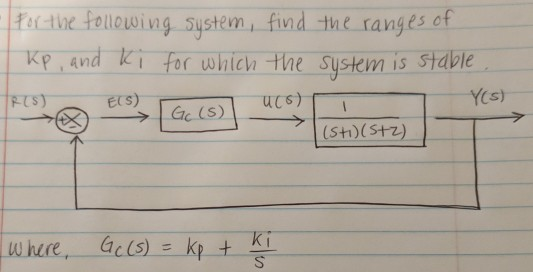 For the following system, find the ranges of
Kp, and Ki for which the system is stable.
R(S) E(S) Gc(S) U(S) 1 / (S+1)(S+2) Y(S)
+ -
where, Gc(S) = Kp + Ki / S